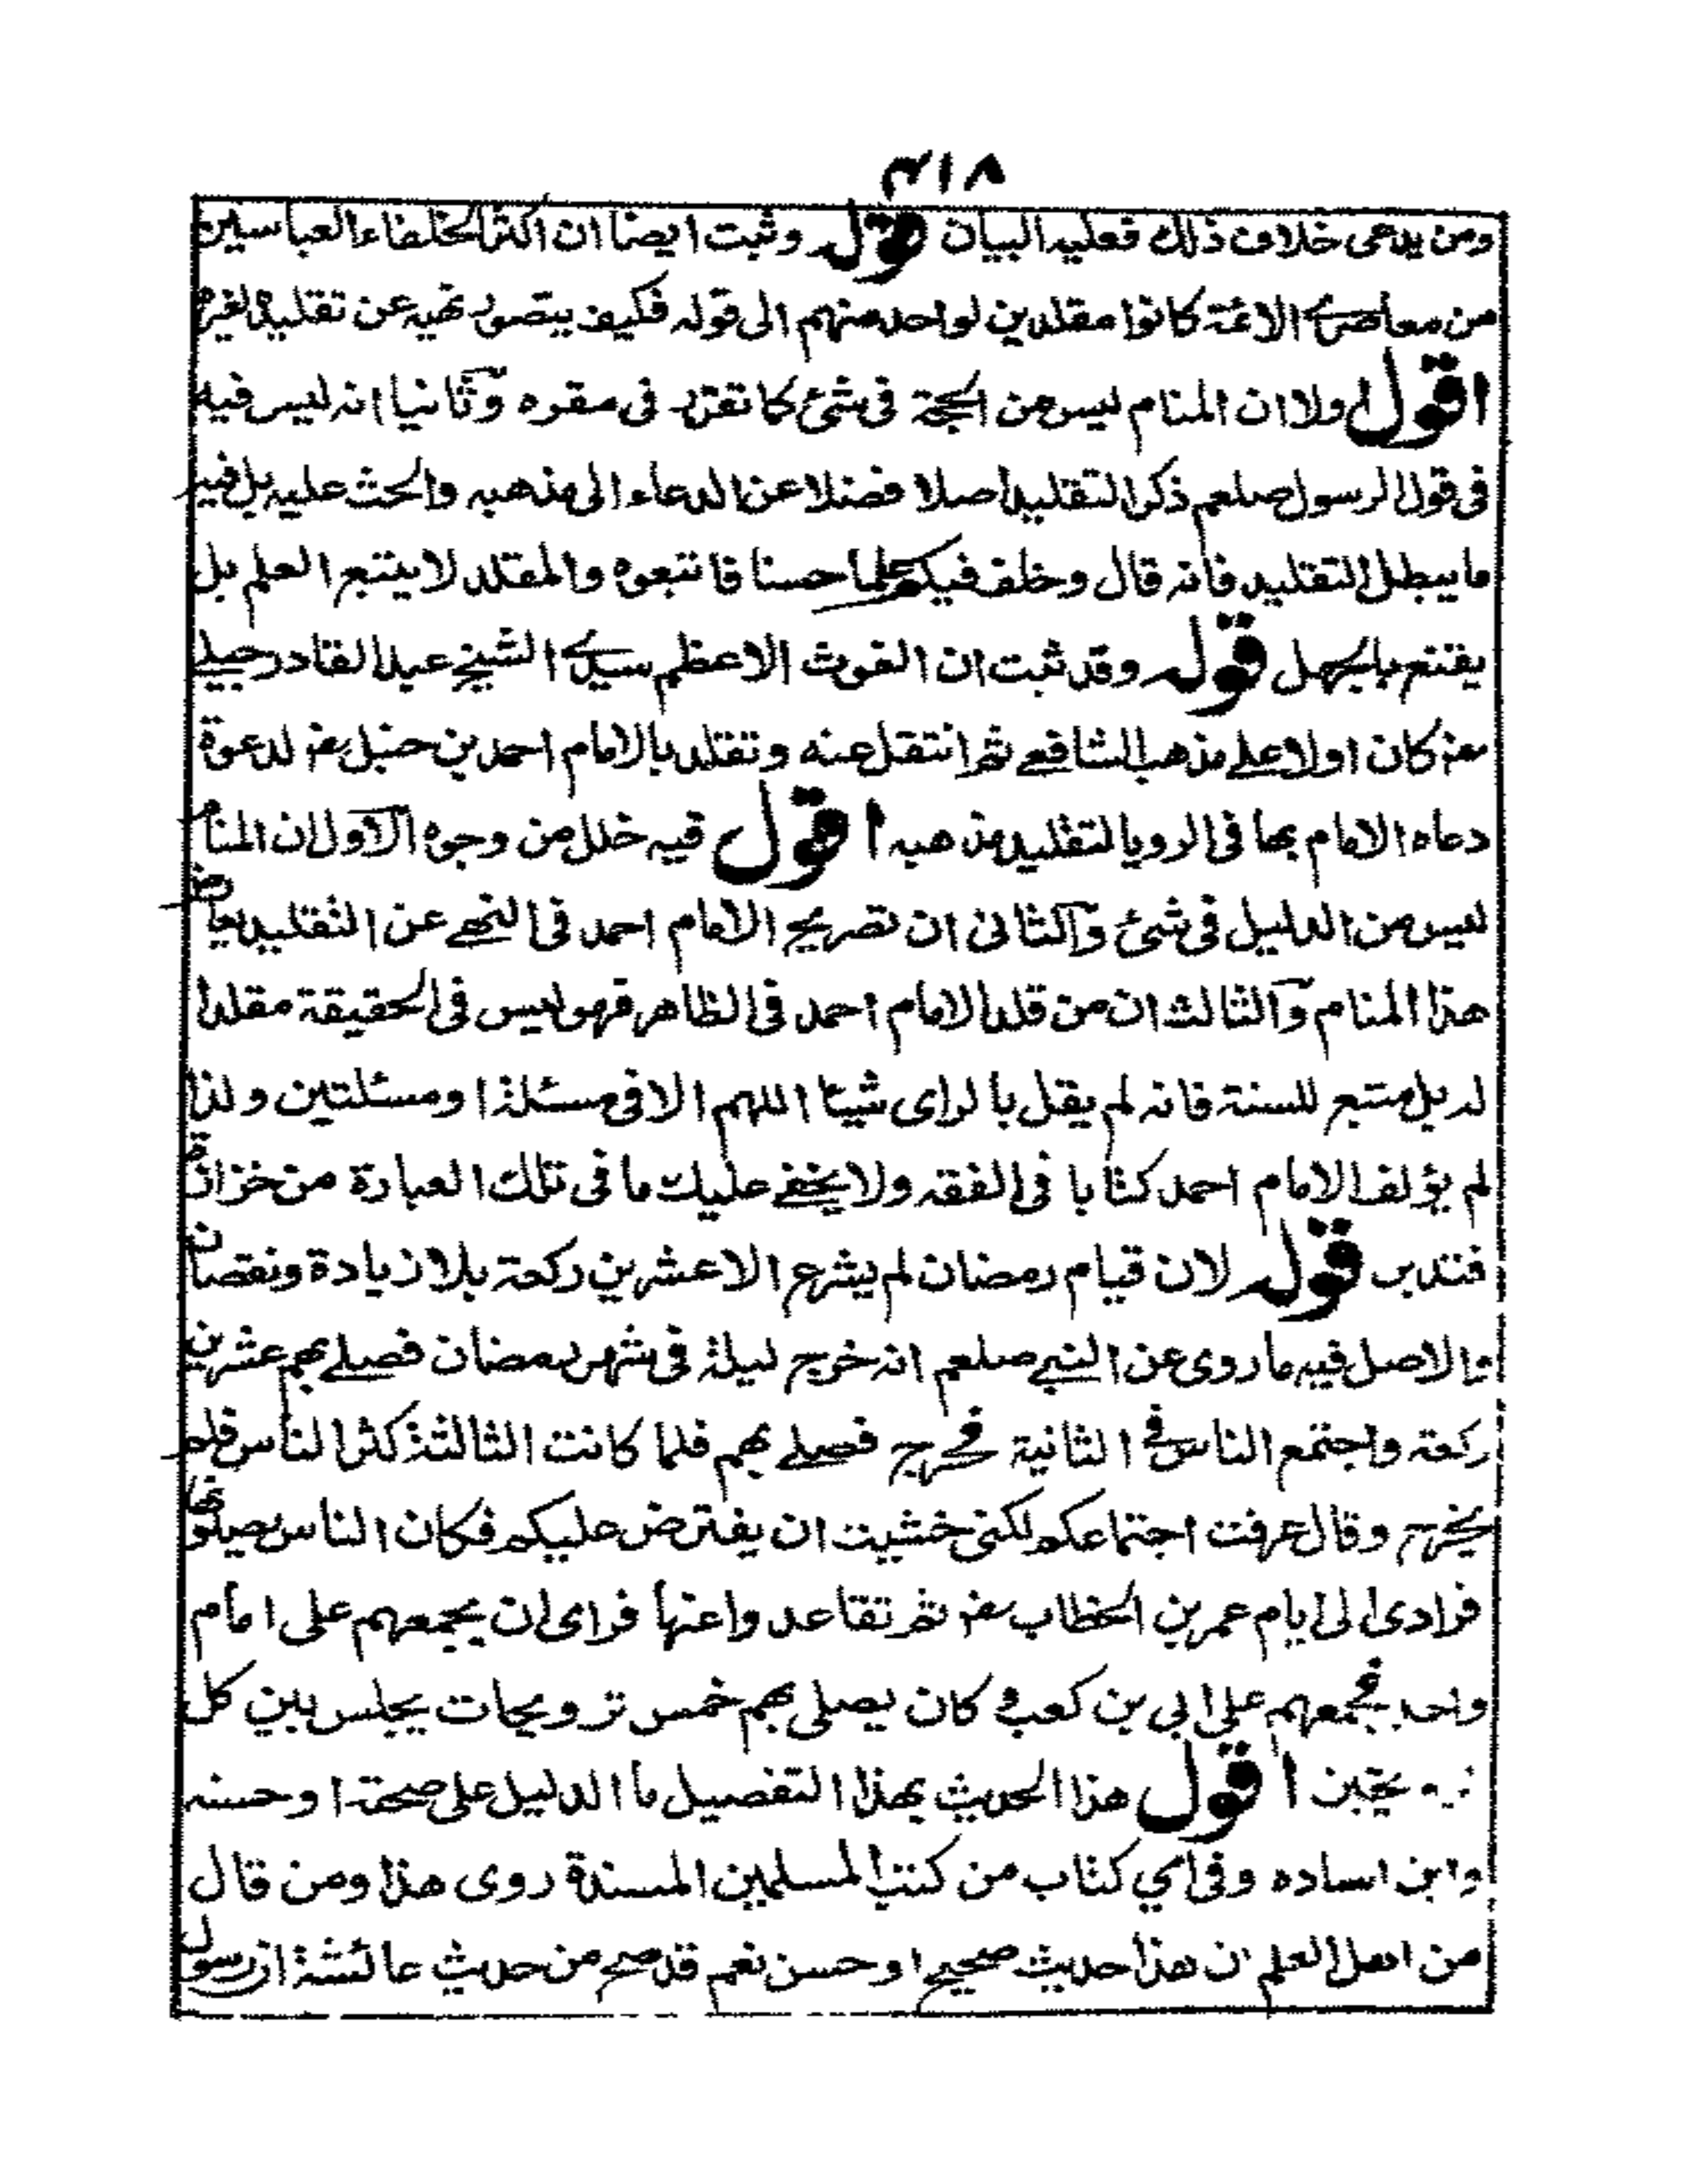 ٤١٨
ومن يدعى خلاف ذلك فعليه البيان قوله وثبت ايضا ان اكثر الخلفاء العباسيين
من معاصرے الائمة كانوا مقلدين لواحد منهم الى قوله فكيف يتصور نهيه عن تقليد لغيره
اقول اولا ان المنام ليس من الحجة فى شئ كما تقرر فى مقره وثانيا انه ليس فيه
فى قول الرسول صلعم ذكر التقليد اصلا فضلا عن الدعاء الى مذهبه والحث عليه بل فيه
ما يبطل التقليد فانه قال وخلف فيكم علما حسنا فاتبعوه والمقلد لا يتبع العلم بل
يقتنع بالجهل قوله وقد ثبت ان الغوث الاعظم سيدے الشيخ عبد القادر جيلے
رضه كان اولا علے مذهب الشافعے ثم انتقل عنه وتقلد بالامام احمد بن حنبل رضه لدعوة
دعاه الامام بها فى الرويا لتقليد مذهبه اقول فيه خلل من وجوه الاول ان المنام
ليس من الدليل فى شئ والثانى ان تصريح الامام احمد فى النهے عن التقليد يعارض
هذا المنام والثالث ان من قلد الامام احمد فى الظاهر فهو ليس فى الحقيقة مقلدا
له بل متبع للسنة فانه لم يقل بالراى شيئا اللهم الا فى مسئلة او مسئلتين ولذا
لم يؤلف الامام احمد كتابا فى الفقه ولا يخفے عليك ما فى تلك العبارة من خزازة
فتدبر قوله لان قيام رمضان لم يشرع الا عشرين ركعة بلا زيادة ونقصان
والاصل فيه ما روى عن النبے صلعم انه خرج ليلة فى شهر رمضان فصلے بهم عشرين
ركعة واجتمع الناس فے الثانية فخرج فصلے بهم فلما كانت الثالثة كثر الناس فلم
يخرج وقال عرفت اجتماعكم لكنى خشيت ان يفترض عليكم فكان الناس يصلونها
فرادى الى ايام عمر بن الخطاب رضه ثم تقاعدوا عنها فراى ان يجمعهم على امام
واحد فجمعهم على ابي بن كعب و كان يصلى بهم خمس ترويحات يجلس بين كل
ترويحتين اقول هذا الحديث بهذا التفصيل ما الدليل على صحته او حسنه
واين اسناده وفى اي كتاب من كتب المسلمين المسندة روى هذا ومن قال
من اهل العلم ان هذا حديث صحيح او حسن نعم قد صح من حديث عائشة ان رسول